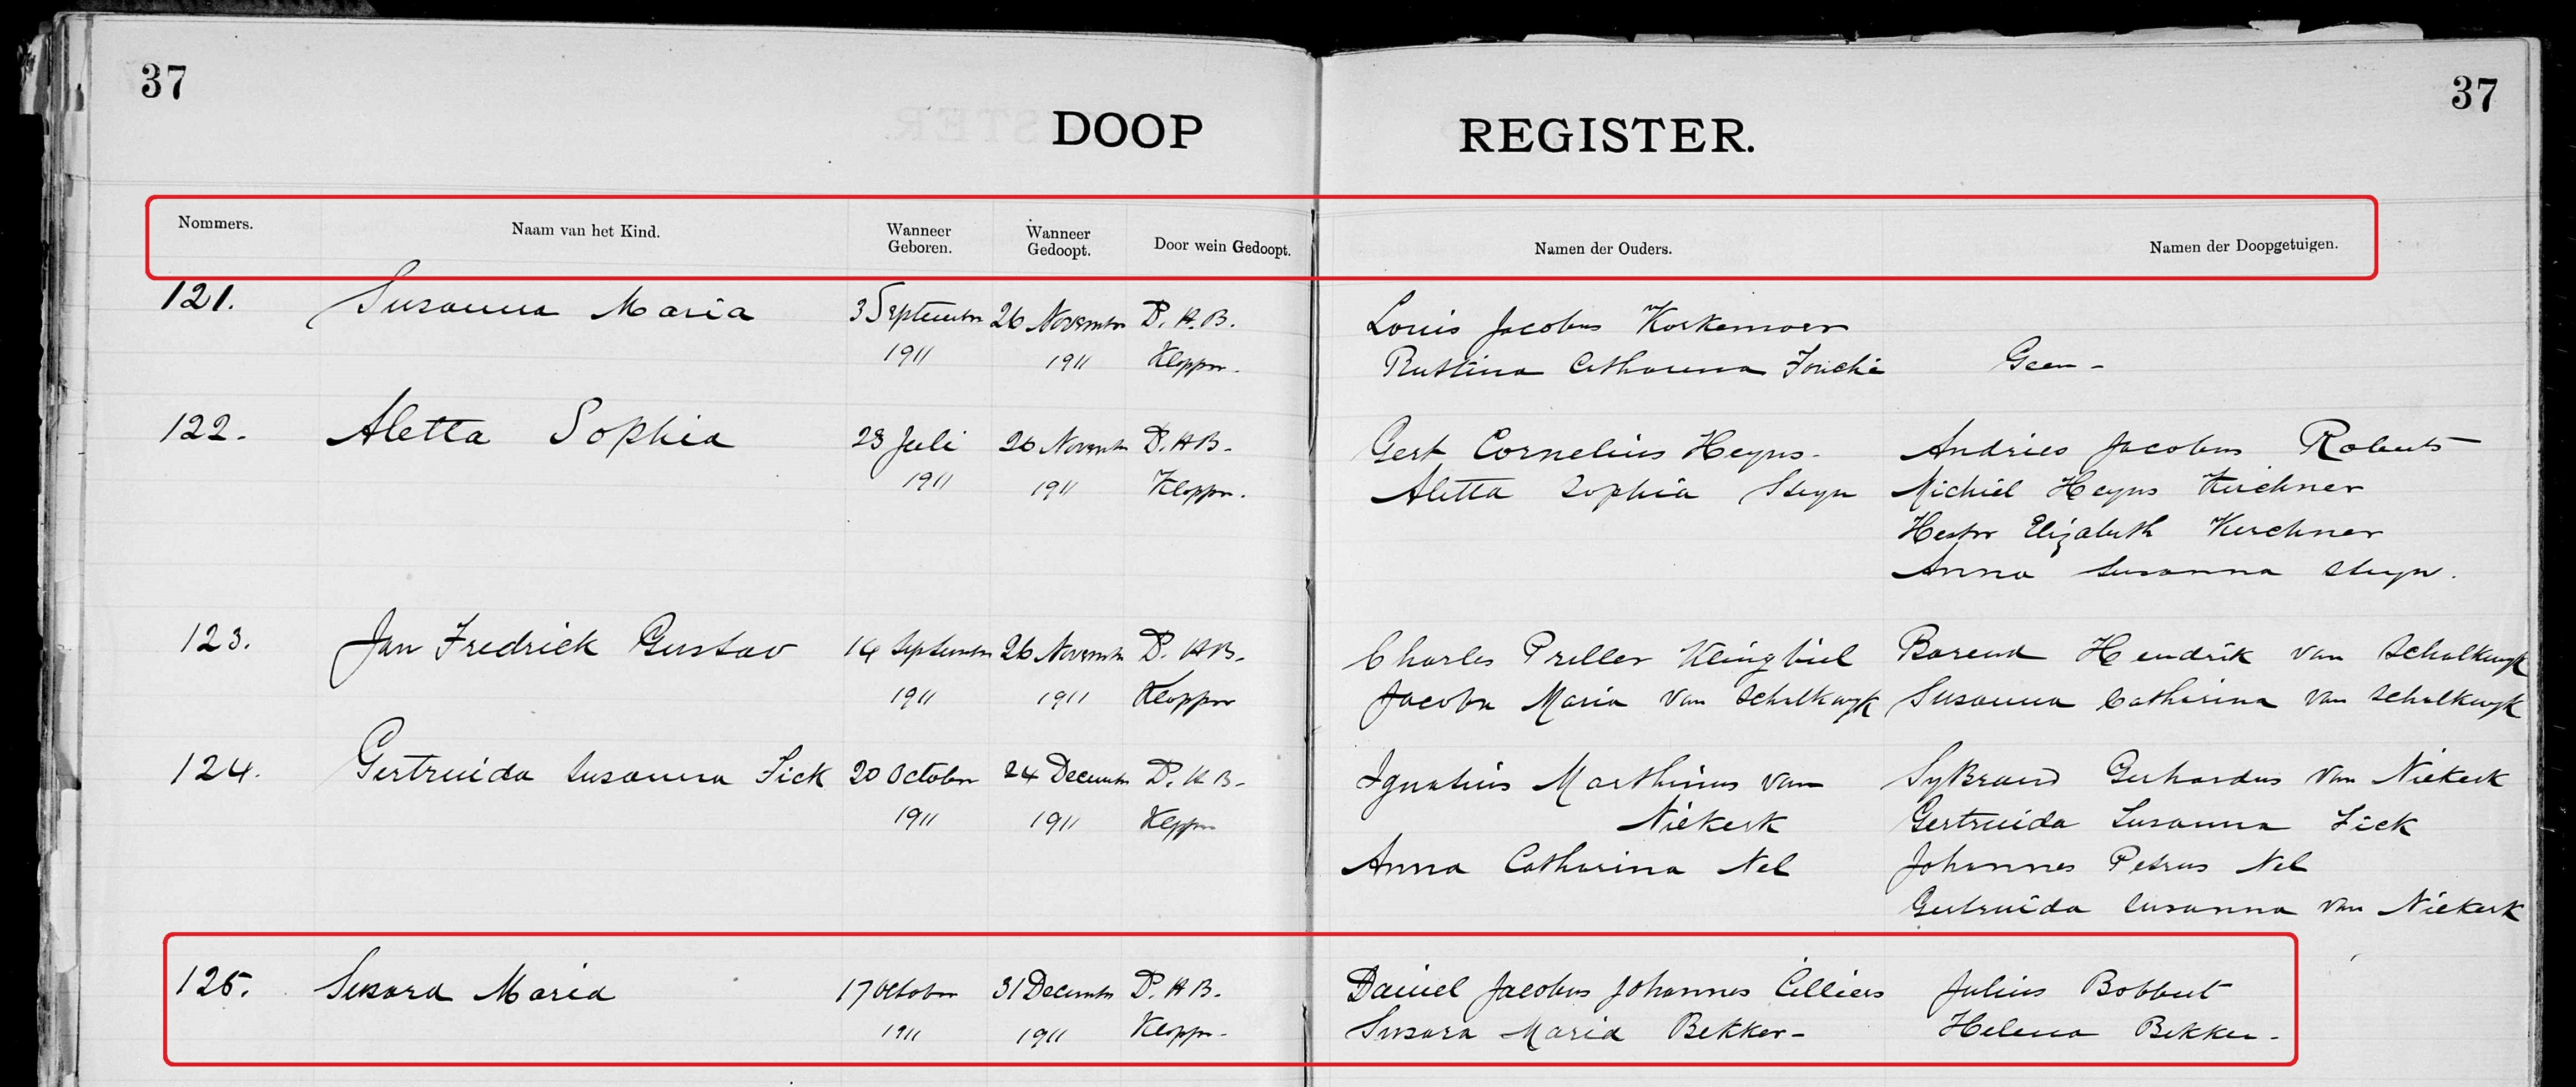 37
37
DOOP REGISTER.
Nommers. Naam van het Kind. Wanneer Geboren. Wanneer Gedoopt. Door wein Gedoopt. Namen der Ouders. Namen der Doopgetuigen.
121. Susanna Maria 3 September 26 November P. H. B. Louis Jacobus Koekemoer
1911 1911 Klopper. Catharina Fouché Geen -
122. Aletta Sophia 23 Juli 26 Novemb P. H B. Gert Cornelius Heyns. Andries Jacobus Roberts
1911 1911 Klopper. Aletta Sophia Steyn Michiel Heyns Kirchner
Hester Elizabeth Kirchner
Anna Susanna Steyn.
123. Jan Fredrick Gustav 14 September 26 November P. H B. Charles Preller Klingbiel Barend Hendrik van Schalkwyk
1911 1911 Klopper Jacoba Maria van Schalkwyk Susanna Catharina van Schalkwyk
124. Gertruida Susanna Fick 20 October 24 December P. H B. Ignatius Marthinus van SyBrand Gerhardus van Niekerk
1911 1911 Klopper Niekerk Gertruida Susanna Fick
Anna Catharina Nel Johannes Petrus Nel
Gertruida Susanna van Niekerk
125. Susara Maria 17 October 31 December P. H B. Daniel Jacobus Johannes Cilliers Julius Bobbert
1911 1911 Klopper. Susara Maria Bekker - Helena Bekker -